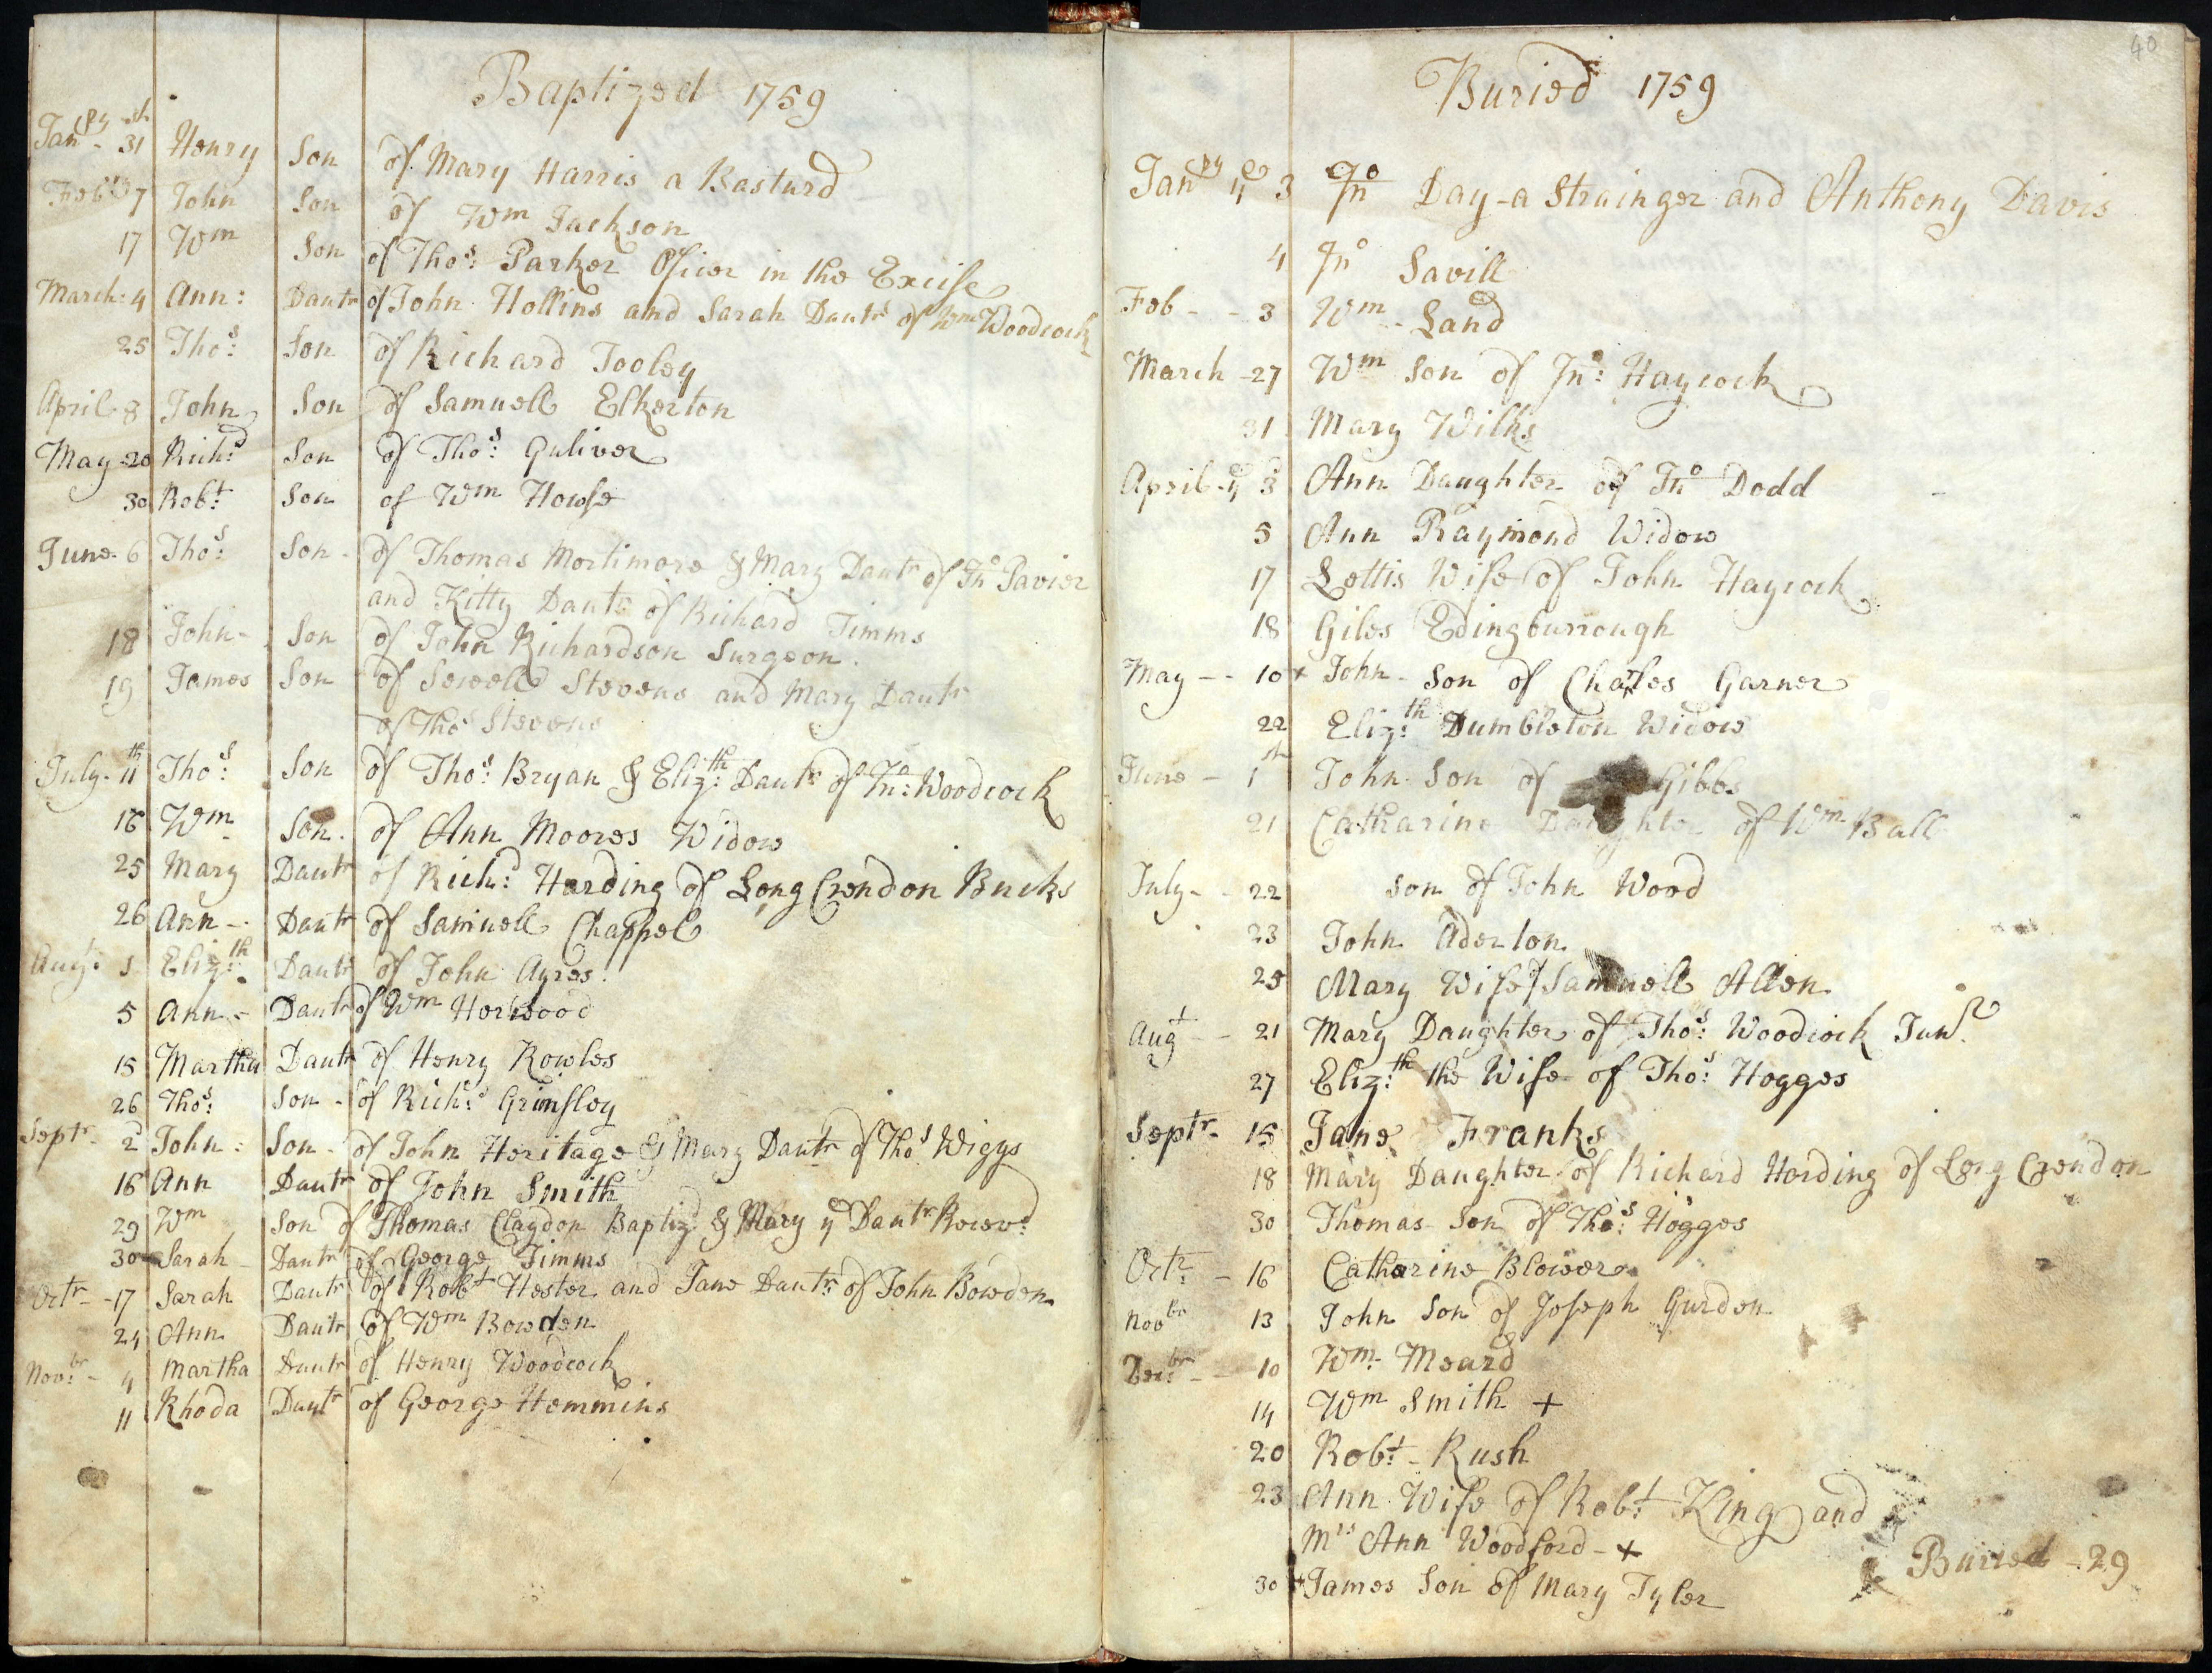 Baptized 1759
Janry 31 Henry Son of Mary Harris a Bastard
Febry 7 John Son of Wm Jackson
17 Wm Son of Thos: Parker Officer in the Excise
March: 4 Ann: Dautr of John Hollins and Sarah Dautr of Wm Woodcock
25 Thos: Son of Richard Tooley
April 8 John Son of Samuell Elkerton
May 20 Richd Son of Thos: Guliver
30 Robt: Son of Wm Howse
June 6 Thos: Son of Thomas Mortimore & Mary Dautr of Jno Pavier
and Kitty Dautr of Richard Timms
18 John Son of John Richardson Surgeon.
19 James Son of Sewell Stevens and Mary Dautr
of Thos Stevens
July 11th Thos: Son of Thos: Bryan & Eliz:th Dautr of Jno: Woodcock
18 Wm Son of Ann Moores Widow
25 Mary Dautr of Richd: Harding of Long Crendon Bucks
26 Ann Dautr of Samuell Chappel
Augt: 1 Eliz:th Dautr of John Ayres.
5 Ann Dautr of Wm Horwood
15 Martha Dautr of Henry Rowles
26 Thos: Son of Richd: Grimsley
Septr 2d John: Son of John Heritage & Mary Dautr of Thos Wiggs
16 Ann Dautr of John Smith
29 Wm Son of Thomas Claydon Baptizd & Mary ye Dautr Recevd:
30 Sarah Dautr of George Timms
Octr 17 Sarah Dautr of Robt Hester and Jane Dautr: of John Bowden
24 Ann Dautr of Wm Bowden
Novbr: 4 Martha Dautr of Henry Woodcock
11 Rhoda Dautr of George Hemmins
40
Buried 1759
Janry ye 3 Jno Day a Strainger and Anthony Davis
4 Jno Savill
Feb 3 Wm Land
March 27 Wm Son of Jno: Haycock
31 Mary Wilks
April ye 3 Ann Daughter of Jno Dodd
5 Ann Raymond Widow
17 Lettis Wife of John Haycock
18 Giles Edingburrough
May 10 + John Son of Charles Garner
22 Eliz:th Dumbleton Widow
June 1st John Son of Gibbs
21 Catharine Daughter of Wm Ball
July 22 son of John Wood
23 John Aderton
25 Mary Wife of Samuell Allen
Augt 21 Mary Daughter of Thos: Woodcock Junr.
27 Eliz:th the Wife of Thos: Hogges
Septr 15 Jane Franks
18 Mary Daughter of Richard Harding of Long Crendon
30 Thomas Son of Thos: Hogges
Octr: 16 Catharine Blower
Novbr 13 John Son of Joseph Gurden
Decbr: 10 Wm Meard
14 Wm Smith +
20 Robt: Rush
23 Ann Wife of Robt: King and
Mrs Ann Woodford +
30 + James Son of Mary Tyler
Buried 29